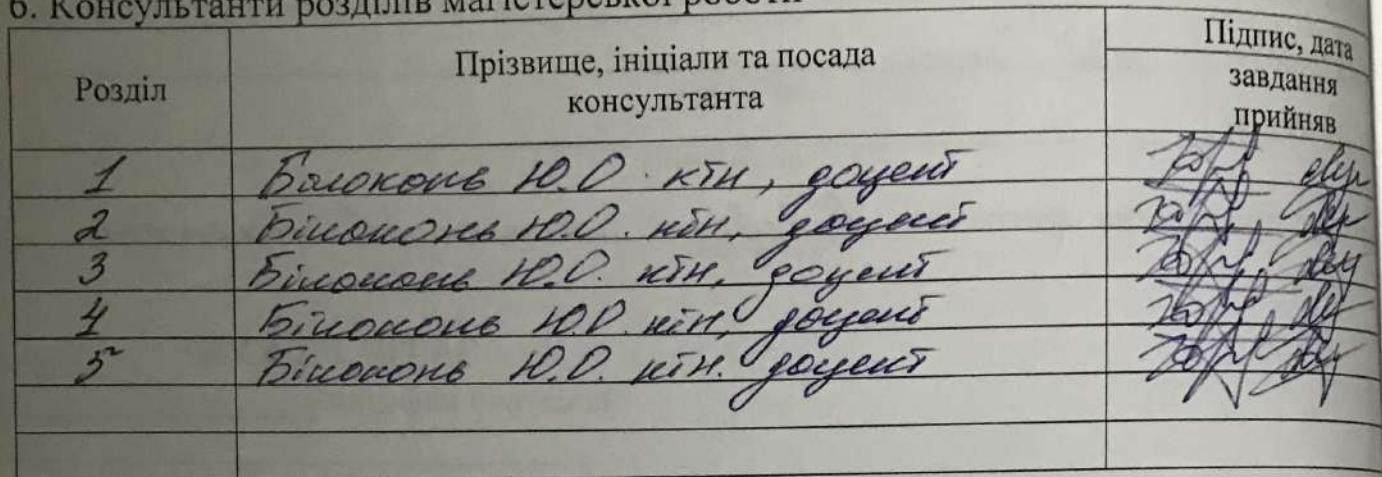 6. Консультанти розділів магістерської роботи
Розділ
Прізвище, ініціали та посада
консультанта
Підпис, дата
завдання
прийняв
1 Білоконь Ю.О. ктн, доцент
2 Білоконь Ю.О. ктн, доцент
3 Білоконь Ю.О. ктн, доцент
4 Білоконь Ю.О. ктн, доцент
5 Білоконь Ю.О. ктн. доцент